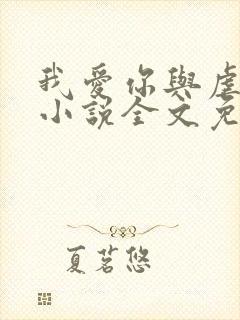 我爱你與虐
小説全文免
夏茗悠